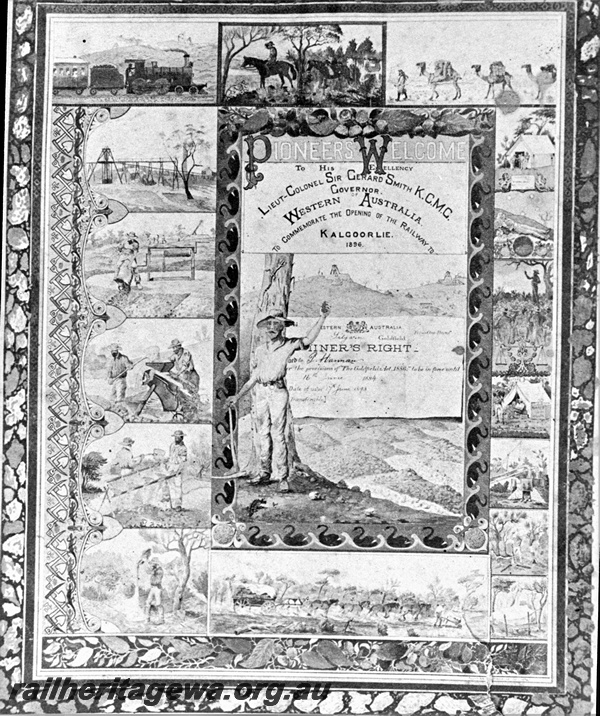 PIONEERS' WELCOME
TO HIS EXCELLENCY
LIEUT-COLONEL SIR GERARD SMITH K.C.M.G.
GOVERNOR
OF
WESTERN AUSTRALIA,
TO COMMEMORATE THE OPENING OF THE RAILWAY TO
KALGOORLIE.
1896.
WESTERN AUSTRALIA
Goldfield
MINER'S RIGHT
Hannan
the provisions of "The Goldfields Act, 1886," to be in force until
1894
Date of issue June 1893
railheritagewa.org.au